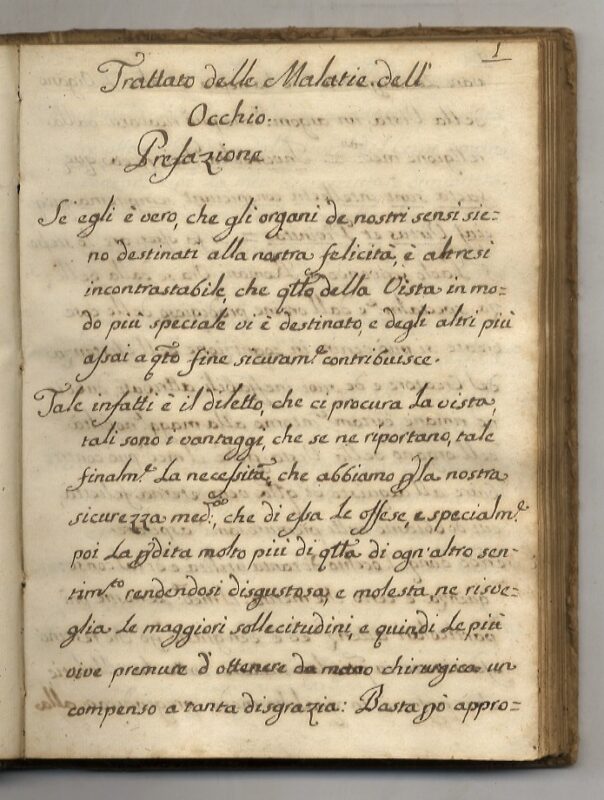 1
Trattato delle Malatie dell'
Occhio.
Prefazione
Se egli è vero, che gli organi de nostri sensi sie=
no destinati alla nostra felicità, è altresi
incontrastabile, che qtło della Vista in mo=
do più speciale vi è destinato, e degli altri più
assai a qto fine sicuram.e contribuisce.
Tale infatti è il diletto, che ci procura la vista,
tali sono i vantaggi, che se ne riportano, tale
finalm.e la necessità, che abbiamo ꝑ la nostra
sicurezza med:, che di essa le offese, e specialm.e
poi la ꝑdita molto più di qtła di ogn'altro sen-
tim.to rendendosi disgustosa, e molesta, ne risve=
glia le maggiori sollecitudini, e quindi le più
vive premure d'ottenere da mano chirurgica un
compenso a tanta disgrazia: Basta ꝑò appro=